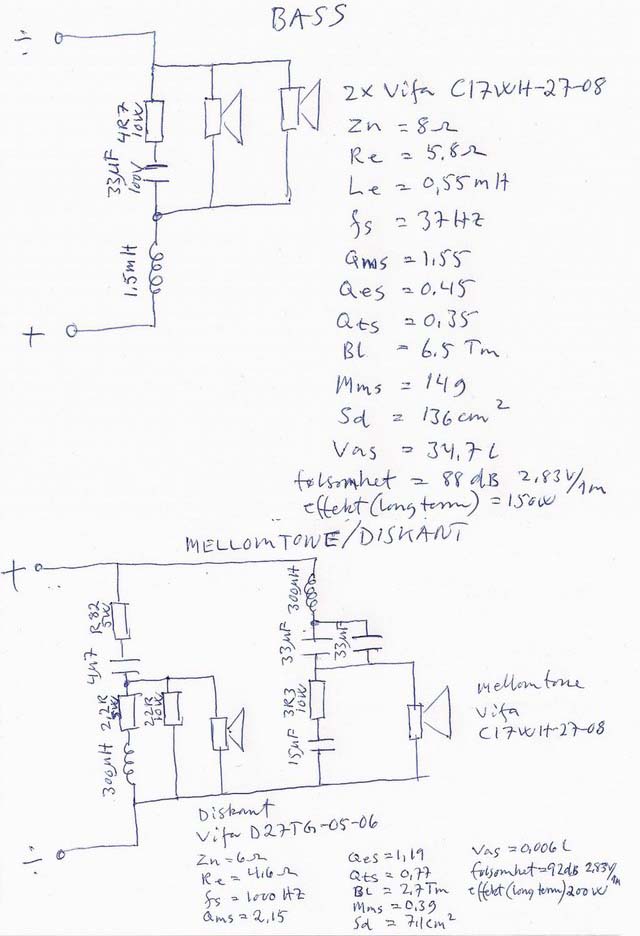 BASS
÷
4R7
10W
33µF
100V
1.5mH
+
2x Vifa C17WH-27-08
Zn = 8Ω
Re = 5.8Ω
Le = 0,55mH
fs = 37HZ
Qms = 1,55
Qes = 0.45
Qts = 0,35
BL = 6.5 Tm
Mms = 14g
Sd = 136cm²
Vas = 34,7L
følsomhet = 88dB 2,83V/1m
effekt (long term) = 150W
MELLOMTONE/DISKANT
+
R82
5W
4µ7
2,2R
5W
22R
10W
300µH
÷
300µH
33µF
33µF
3R3
10W
15µF
mellomtone
Vifa
C17WH-27-08
Diskant
Vifa D27TG-05-06
Zn = 6Ω
Re = 4.6Ω
fs = 1000 HZ
Qms = 2,15
Qes = 1,19
Qts = 0,77
BL = 2,7Tm
Mms = 0,3g
Sd = 7,1cm²
Vas = 0,006L
følsomhet = 92dB 2,83V/1m
effekt (long term) 200W